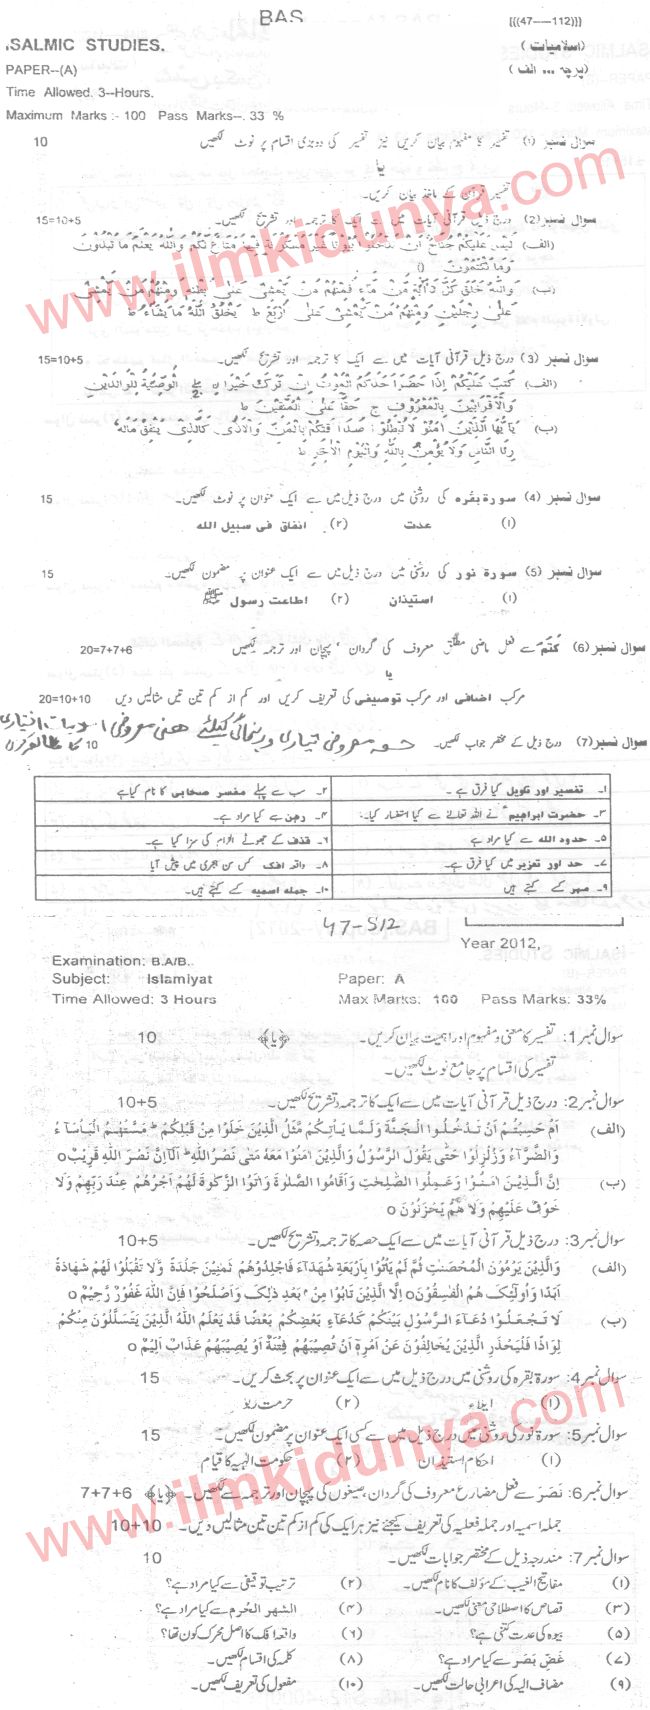 BAS
(((47-----112)))
ISALMIC STUDIES.
(اسلامیات)
PAPER--(A)
(پرچہ ... الف)
Time Allowed. 3--Hours.
Maximum Marks :- 100 Pass Marks--. 33 %
سوال نمبر (1) تفسیر کا مفہوم بیان کریں نیز تفسیر کی دو بڑی اقسام پر نوٹ لکھیں 10
یا
تفسیر قرآن کے ماخذ بیان کریں۔
سوال نمبر (2) درج ذیل قرآنی آیات میں سے ایک کا ترجمہ اور تشریح لکھیں۔ 15=10+5
(الف) لَيْسَ عَلَيْكُمْ جُنَاحٌ اَنْ تَدْخُلُوْا بُيُوْتًا غَيْرَ مَسْكُوْنَةٍ فِيْهَا مَتَاعٌ لَّكُمْ وَاللّٰهُ يَعْلَمُ مَا تُبْدُوْنَ
وَمَا تَكْتُمُوْنَ ()
(ب) وَاللّٰهُ خَلَقَ كُلَّ دَآبَّةٍ مِّنْ مَّآءٍ فَمِنْهُمْ مَّنْ يَّمْشِىْ عَلٰى بَطْنِهٖ وَمِنْهُمْ مَّنْ يَّمْشِىْ
عَلٰى رِجْلَيْنِ وَمِنْهُمْ مَّنْ يَّمْشِىْ عَلٰى اَرْبَعٍ ط يَخْلُقُ اللّٰهُ مَا يَشَآءُ ط
سوال نمبر (3) درج ذیل قرآنی آیات میں سے ایک کا ترجمہ اور تشریح لکھیں۔ 15=10+5
(الف) كُتِبَ عَلَيْكُمْ اِذَا حَضَرَ احَدَكُمُ الْمَوْتُ اِنْ تَرَكَ خَيْرَانِ الْوَصِيَّةُ لِلْوَالِدَيْنِ
وَالْاَقْرَابِيْنَ بِالْمَعْرُوْفِ ج حَقًّا عَلَى الْمُتَّقِيْنَ ط
(ب) يٰاَيُّهَا الَّذِيْنَ اٰمَنُوْ لَا تُبْطِلُوْ صَدَا قٰتِكُمْ بِالْمَنِّ وَالْاَذٰى كَالَّذِىْ يُنْفِقُ مَالَهٗ
رِئَا النَّاسِ وَلَا يُؤْمِنُ بِاللّٰهِ وَالْيَوْمِ الْاٰخِرِ ط
سوال نمبر (4) سورۃ بقرہ کی روشنی میں درج ذیل میں سے ایک عنوان پر نوٹ لکھیں۔ 15
(۱) عدت (۲) انفاق فی سبیل اللہ
سوال نمبر (5) سورۃ نور کی روشنی میں درج ذیل میں سے ایک عنوان پر مضمون لکھیں۔ 15
(۱) استیذان (۲) اطاعت رسول ﷺ
سوال نمبر (6) كَتَمَ سے فعل ماضی مطلق معروف کی گردان ' پہچان اور ترجمہ لکھیے 20=7+7+6
یا
مرکب اضافی اور مرکب توصیفی کی تعریف کریں اور کم از کم تین تین مثالیں دیں 20=10+10
حصہ معروضی تیاری و رہنمائی کیلئے معروضی اسلامیات اختیاری
سوال نمبر(7) درج ذیل کے مختصر جواب لکھیں۔ 10 کا مطالعہ کریں
۱۔ تفسیر اور تاویل کیا فرق ہے۔ ۲۔ سب سے پہلے مفسر صحابی کا نام کیا ہے
۳۔ حضرت ابراہیم نے اللہ تعالیٰ سے کیا استفسار کیا۔ ۴۔ رہن سے کیا مراد ہے۔
۵۔ حدود اللہ سے کیا مراد ہے ۶۔ قذف کے جھوٹے الزام کی سزا کیا ہے۔
۷۔ حد اور تعزیر میں کیا فرق ہے۔ ۸۔ واقعہ افک کس سن ہجری میں پیش آیا
۹۔ مہر کسے کہتے ہیں ۱۰۔ جملہ اسمیہ کسے کہتے ہیں۔
47-S12
Year 2012,
Examination: B.A/B..
Subject: Islamiyat Paper: A
Time Allowed: 3 Hours Max Marks: 100 Pass Marks: 33%
سوال نمبر 1: تفسیر کا معنی و مفہوم اور اہمیت بیان کریں۔ ﴿یا﴾ 10
تفسیر کی اقسام پر جامع نوٹ لکھیں۔
سوال نمبر 2: درج ذیل قرآنی آیات میں سے ایک کا ترجمہ و تشریح لکھیں۔ 10+5
(الف) اَمْ حَسِبْتُمْ اَنْ تَدْخُلُوا الْجَنَّةَ وَلَمَّا يَاْتِكُمْ مَّثَلُ الَّذِيْنَ خَلَوْا مِنْ قَبْلِكُمْ ؕ مَسَّتْهُمُ الْبَاْسَآءُ
وَالضَّرَّآءُ وَزُلْزِلُوْا حَتّٰى يَقُوْلَ الرَّسُوْلُ وَالَّذِيْنَ اٰمَنُوْا مَعَهٗ مَتٰى نَصْرُ اللّٰهِ ؕ اَلَآ اِنَّ نَصْرَ اللّٰهِ قَرِيْبٌ o
(ب) اِنَّ الَّذِيْنَ اٰمَنُوْا وَعَمِلُوا الصّٰلِحٰتِ وَاَقَامُوا الصَّلٰوةَ وَاٰتَوُا الزَّكٰوةَ لَهُمْ اَجْرُهُمْ عِنْدَ رَبِّهِمْ وَلَا
خَوْفٌ عَلَيْهِمْ وَلَا هُمْ يَحْزَنُوْنَ o
سوال نمبر 3: درج ذیل قرآنی آیات میں سے ایک حصہ کا ترجمہ و تشریح لکھیں۔ 10+5
(الف) وَالَّذِيْنَ يَرْمُوْنَ الْمُحْصَنٰتِ ثُمَّ لَمْ يَاْتُوْا بِاَرْبَعَةِ شُهَدَآءَ فَاجْلِدُوْهُمْ ثَمٰنِيْنَ جَلْدَةً وَّلَا تَقْبَلُوْا لَهُمْ شَهَادَةً
اَبَدًا وَاُولٰٓئِكَ هُمُ الْفٰسِقُوْنَ o اِلَّا الَّذِيْنَ تَابُوْا مِنْۢ بَعْدِ ذٰلِكَ وَاَصْلَحُوْا فَاِنَّ اللّٰهَ غَفُوْرٌ رَّحِيْمٌ o
(ب) لَا تَجْعَلُوْا دُعَآءَ الرَّسُوْلِ بَيْنَكُمْ كَدُعَآءِ بَعْضِكُمْ بَعْضًا قَدْ يَعْلَمُ اللّٰهُ الَّذِيْنَ يَتَسَلَّلُوْنَ مِنْكُمْ
لِوَاذًا فَلْيَحْذَرِ الَّذِيْنَ يُخَالِفُوْنَ عَنْ اَمْرِهٖ اَنْ تُصِيْبَهُمْ فِتْنَةٌ اَوْ يُصِيْبَهُمْ عَذَابٌ اَلِيْمٌ o
سوال نمبر 4: سورۃ بقرہ کی روشنی میں درج ذیل میں سے ایک عنوان پر بحث کریں۔ 15
(۱) ایلاء (۲) حرمت ربوٰ
سوال نمبر 5: سورۃ نور کی روشنی میں درج ذیل میں سے کسی ایک عنوان پر مضمون لکھیں۔ 15
(۱) احکام استیذان (۲) حکومت الٰہیہ کا قیام
سوال نمبر 6: نَصَرَ سے فعل مضارع معروف کی گردان، صیغوں کی پہچان اور ترجمہ سے لکھیں۔ ﴿یا﴾ 7+7+6
جملہ اسمیہ اور جملہ فعلیہ کی تعریف کیجئے نیز ہر ایک کی کم از کم تین تین مثالیں دیں۔ 10+10
سوال نمبر 7: مندرجہ ذیل کے مختصر جوابات لکھیں۔ 10
(۱) مفاتیح الغیب کے مؤلف کا نام لکھیں۔ (۲) ترتیب توقیفی سے کیا مراد ہے؟
(۳) قصاص کا اصطلاحی معنی لکھیں۔ (۴) الشهر الحُرم سے کیا مراد ہے؟
(۵) بیوہ کی عدت کتنی ہے؟ (۶) واقعہ افک کا اصل محرک کون تھا؟
(۷) غضِ بصر سے کیا مراد ہے؟ (۸) کلمہ کی اقسام لکھیں۔
(۹) مضاف الیہ کی اعرابی حالت لکھیں۔ (۱۰) مفعول کی تعریف لکھیں۔
www.ilmkidunya.com
www.ilmkidunya.com